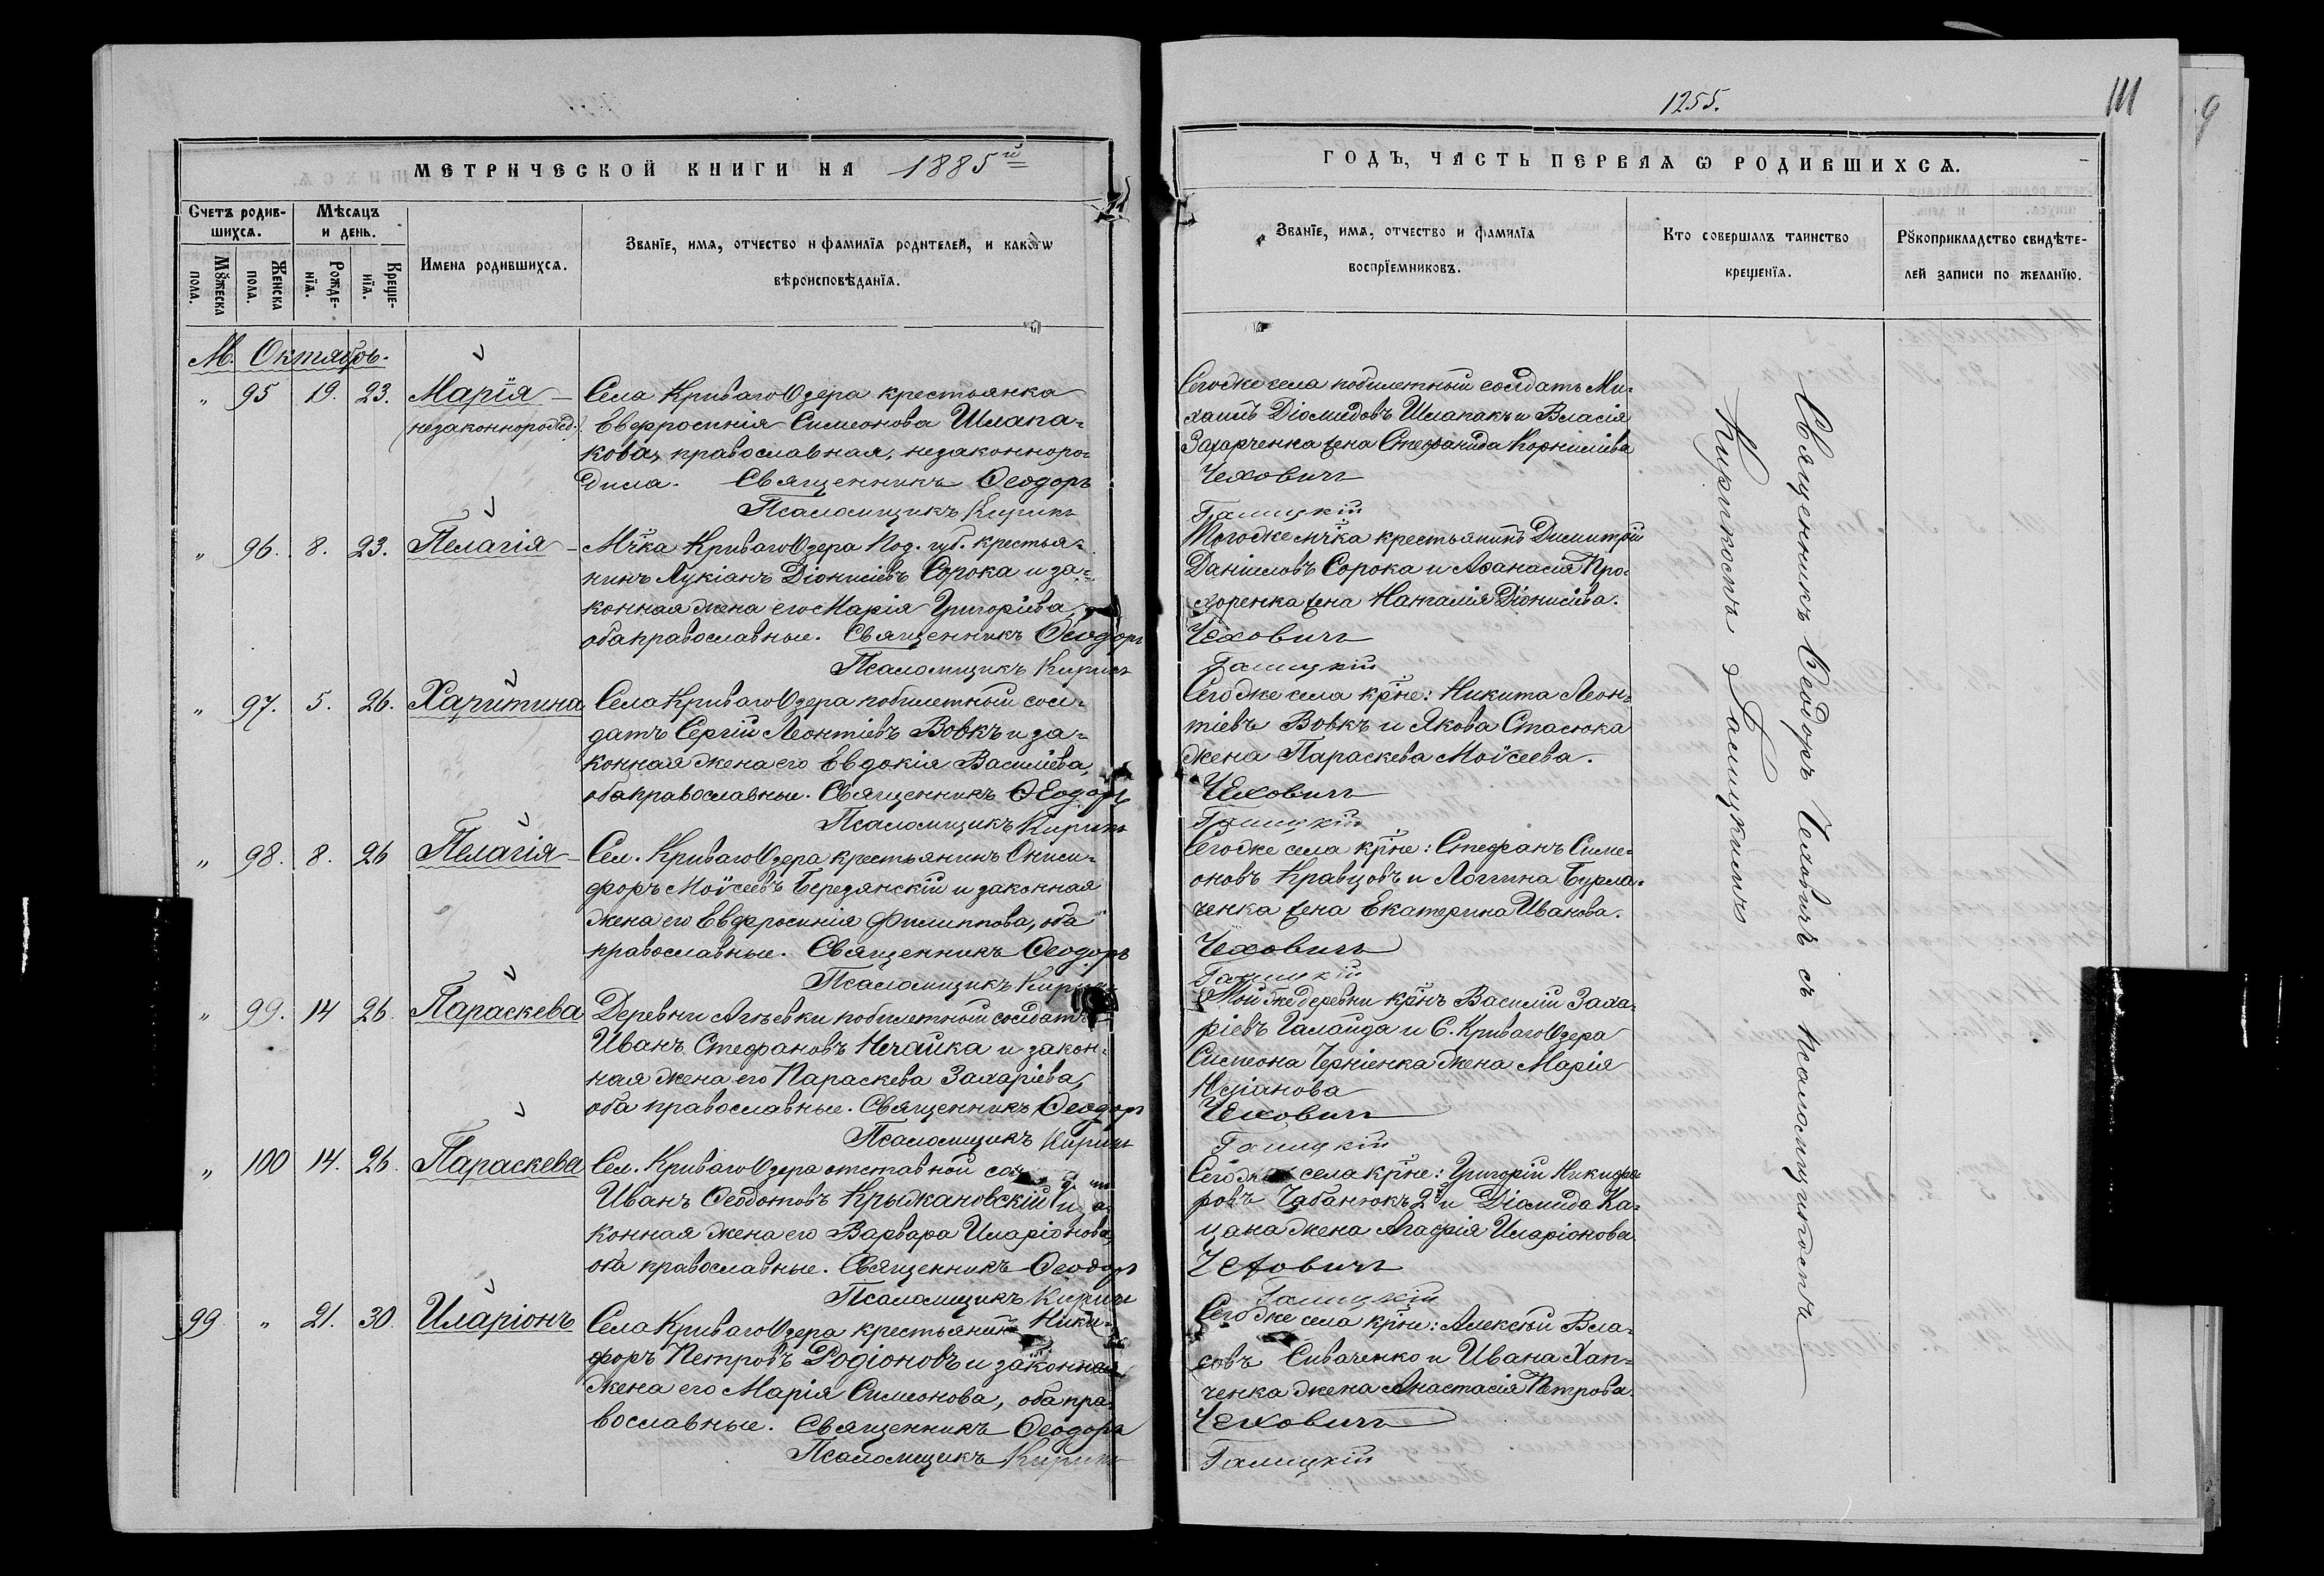 1255.
111
9
МЕТРИЧЕСКОЙ КНИГИ НА 1885й
ГОДЪ, ЧАСТЬ ПЕРВАЯ Ѡ РОДИВШИХСѦ.
Счетъ родив-
шихсѧ.
Мѣсѧцъ
и день.
Мꙋжеска
пола.
Женска
пола.
Рожде-
нїѧ.
Креще-
нїѧ.
Имена родившихсѧ.
Званїе, имѧ, отчество и фамилїѧ родителей, и какогѡ
вѣроисповѣданїѧ.
Званїе, имѧ, отчество и фамилїѧ
воспрїемниковъ.
Кто совершалъ таинство
крещенїѧ.
Рꙋкоприкладство свидѣте-
лей записи по желанїю.
М. Октябрь.
" 95 19. 23. Марія
(незаконнорожд.)
Села Криваго Озера крестьянка
Евфросинія Симеонова Шлапа-
кова, православная, незаконноро-
дила. Священникъ Ѳеодоръ
Псаломщикъ Кирикъ
Сегоже села побилетный солдатъ Ми-
хаилъ Діомидовъ Шлапакъ и Власія
Захарченка жена Стефанида Корниліева
Чеховичъ
Галицкій
" 96. 8. 23. Пелагія
Мч̃ка Криваго Озера Под. губ. крестья-
нинъ Лукіанъ Діонисіевъ Сорока и за-
конная жена его Марія Григоріева,
оба православные. Священникъ Ѳеодоръ
Псаломщикъ Кирикъ
Тогоже мч̃ка крестьянинъ Димитрій
Даніиловъ Сорока и Аѳанасія Про-
хоренка жена Наталія Діонисіева.
Чеховичъ
Галицкій
" 97. 5. 26. Харитина
Села Криваго Озера побилетный сол-
датъ Сергій Леонтіевъ Вовкъ и за-
конная жена его Евдокія Василіева,
оба православные. Священникъ Ѳеодоръ
Псаломщикъ Кирикъ
Сегоже села кр̃не: Никита Леон-
тіевъ Вовкъ и Якова Стасюка
жена Параскева Моѵсеева.
Чеховичъ
Галицкій
" 98. 8. 26 Пелагія
Сел. Криваго Озера крестьянинъ Ониси-
форъ Моѵсеевъ Березянскій и законная
жена его Евфросинія Филиппова, оба
православные. Священникъ Ѳеодоръ
Псаломщикъ Кирикъ
Сегоже села кр̃не: Стефанъ Симе-
оновъ Кравцовъ и Логгина Бурла-
ченка жена Екатерина Иванова.
Чеховичъ
Галицкій
" 99. 14 26. Параскева
Деревни побилетный солдатъ
Иванъ Стефановъ Нечайка и закон-
ная жена его Параскева Захаріева,
оба православные. Священникъ Ѳеодоръ
Псаломщикъ Кирикъ
Той же деревни кр̃нъ Василій Заха-
ріевъ Галайда и С. Криваго Озера
Симеона Черніенка жена Марія
Чеховичъ
Галицкій
" 100 14. 26. Параскева
Сел. Криваго Озера отставной
Иванъ Ѳеодотовъ Крыжановскій и за-
конная жена его Варвара Иларіонова,
оба православные. Священникъ Ѳеодоръ
Псаломщикъ Кирикъ
Сегоже села кр̃не: Григорій Никифо-
ровъ Чабанюкъ 2й и Діомида Ка-
цана жена Агафія Иларіонова
Чеховичъ
Галицкій
99 " 21. 30. Иларіонъ
Села Криваго Озера крестьянинъ Ники-
форъ Петровъ Родіоновъ и законная
жена его Марія Симеонова, оба пра-
вославные. Священникъ Ѳеодоръ
Псаломщикъ Кирикъ
Сегоже села кр̃не: Алексѣй Вла-
совъ Сиваченко и Ивана Хап-
ченка жена Анастасія Петрова.
Чеховичъ
Галицкій
Священникъ Ѳеодоръ Чеховичъ съ псаломщикомъ
Кирикомъ Галицкимъ